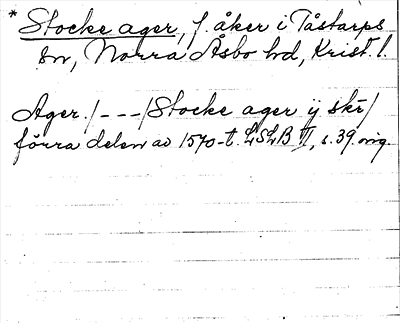 * Stocke ager, f. åker i Tåstarps
sn, Norra Åsbo hd, Krist. l.
Ager. /---/ Stocke ager ij skr /
förra delen av 1570-t. LSLB VI, s. 39. orig.